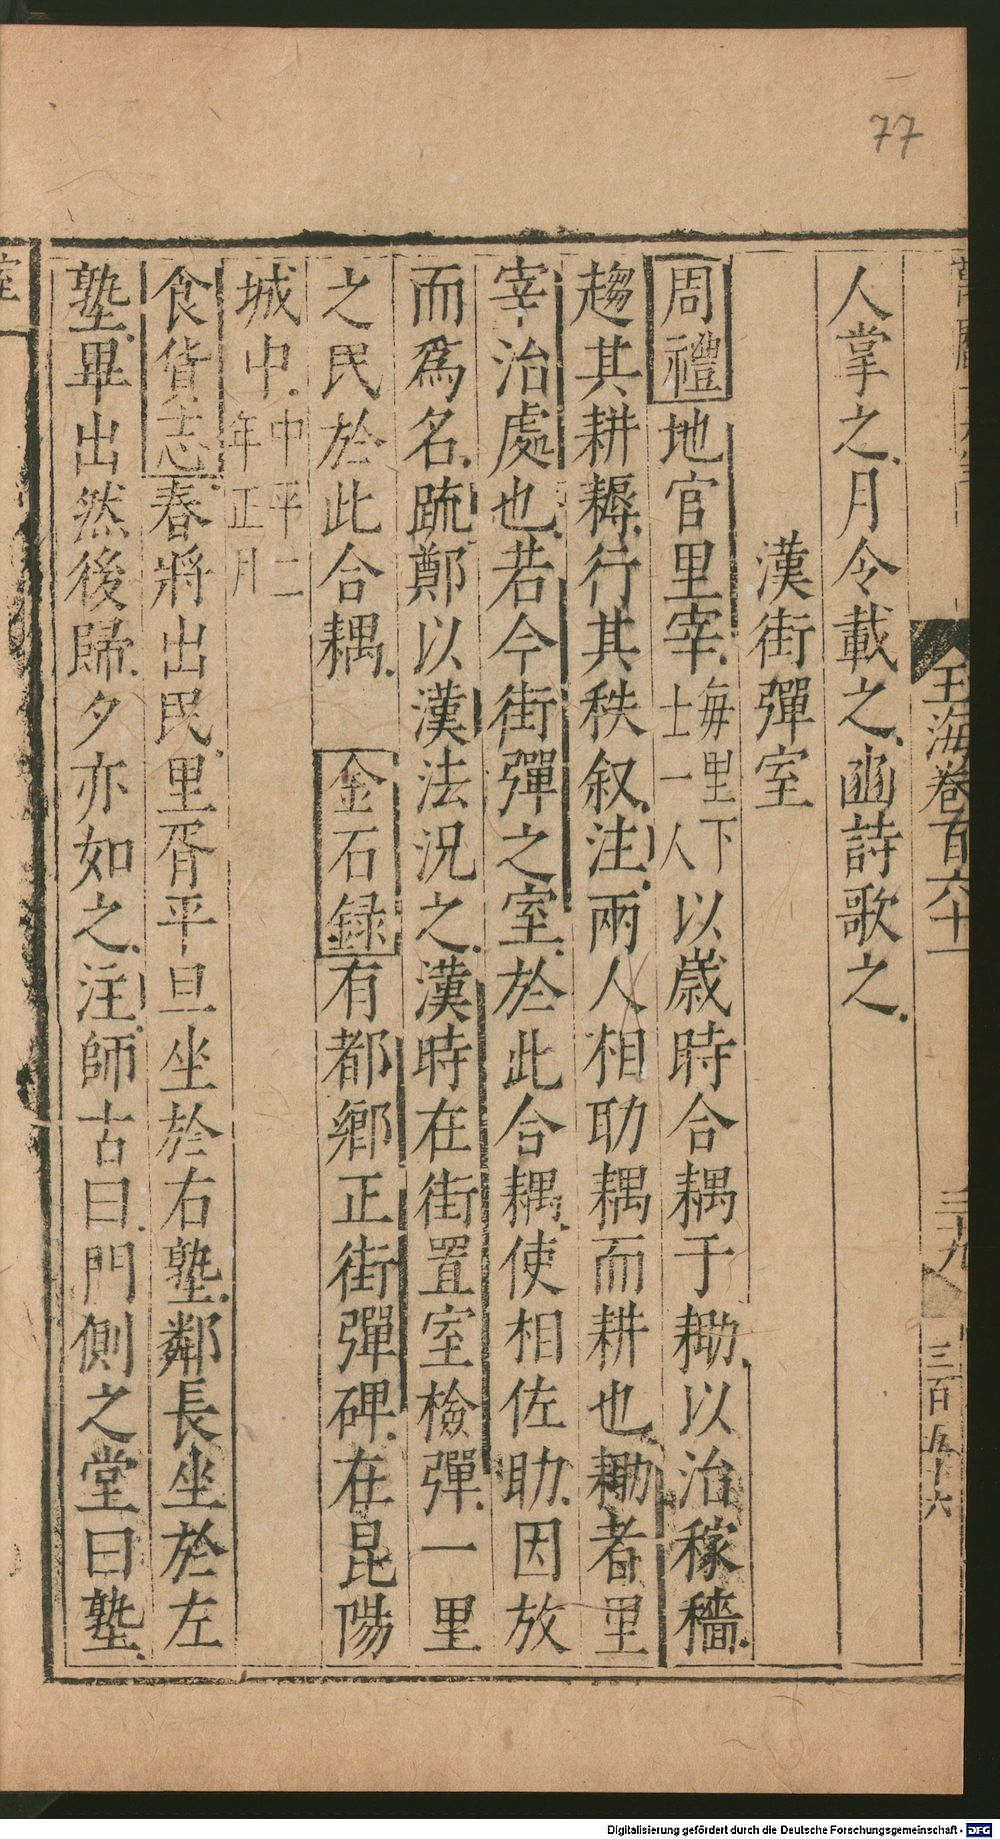 77
玉海卷百六十一
三十九
三百五十六
人掌之月令載之豳詩歌之
漢街彈室
周禮地官里宰每里下士一人以歲時合耦于耡以治稼穡
趨其耕耨行其秩叙注兩人相助耦而耕也耡者里
宰治處也若今街彈之室於此合耦使相佐助因放
而爲名疏鄭以漢法況之漢時在街置室檢彈一里
之民於此合耦 金石録有都鄉正街彈碑在昆陽
城中中平二年正月
食貨志春將出民里胥平旦坐於右塾鄰長坐於左
塾畢出然後歸夕亦如之注師古曰門側之堂曰塾
Digitalisierung gefördert durch die Deutsche Forschungsgemeinschaft - DFG